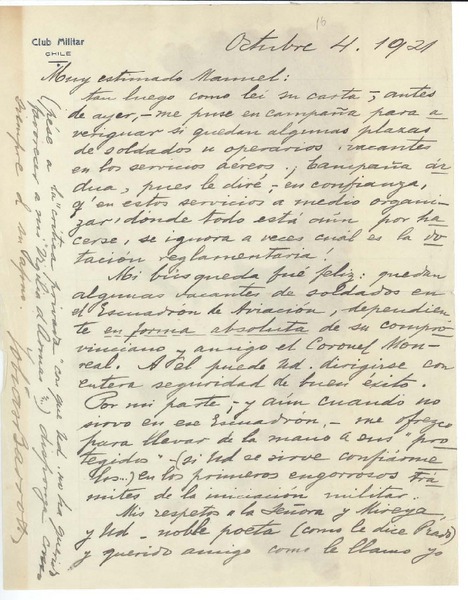 16
Club Militar
CHILE
Octubre 4. 1921
Muy estimado Manuel:
tan luego como leí su carta -, antes
de ayer, - me puse en campaña para a
veriguar si quedan algunas plazas
de soldados u operarios, vacantes
en los servicios aéreos. ¡Campaña ár-
dua, pues le diré - en confianza,
q' en estos servicios a medio organi-
zar, donde todo está aún por ha-
cerse, se ignora a veces cuál es la do-
tación reglamentaria!
Mi búsqueda fué feliz: quedan
algunas vacantes de soldados en
el Escuadrón de Aviación, dependien-
te en forma absoluta de su compro-
vinciano y amigo el Coronel Mon-
real. A él puede Ud. dirigirse con
entera seguridad de buen éxito.
Por mi parte, - y aún cuando no
sirvo en ese Escuadrón, - me ofrezco
para llevar de la mano a sus "pro-
tegidos" - (si Ud se sirve confiárme
los.) en los primeros engorrosos trá-
mites de la iniciación militar.
Mis respetos a la Señora y Mireya,
y Ud - noble poeta (como le dice Prado)
y querido amigo como le llamo yo
(pése a la "crítica privada" con que Ud. no ha querido
favorecer a mi "Vigilia de Armas"...) disponga como
siempre de su